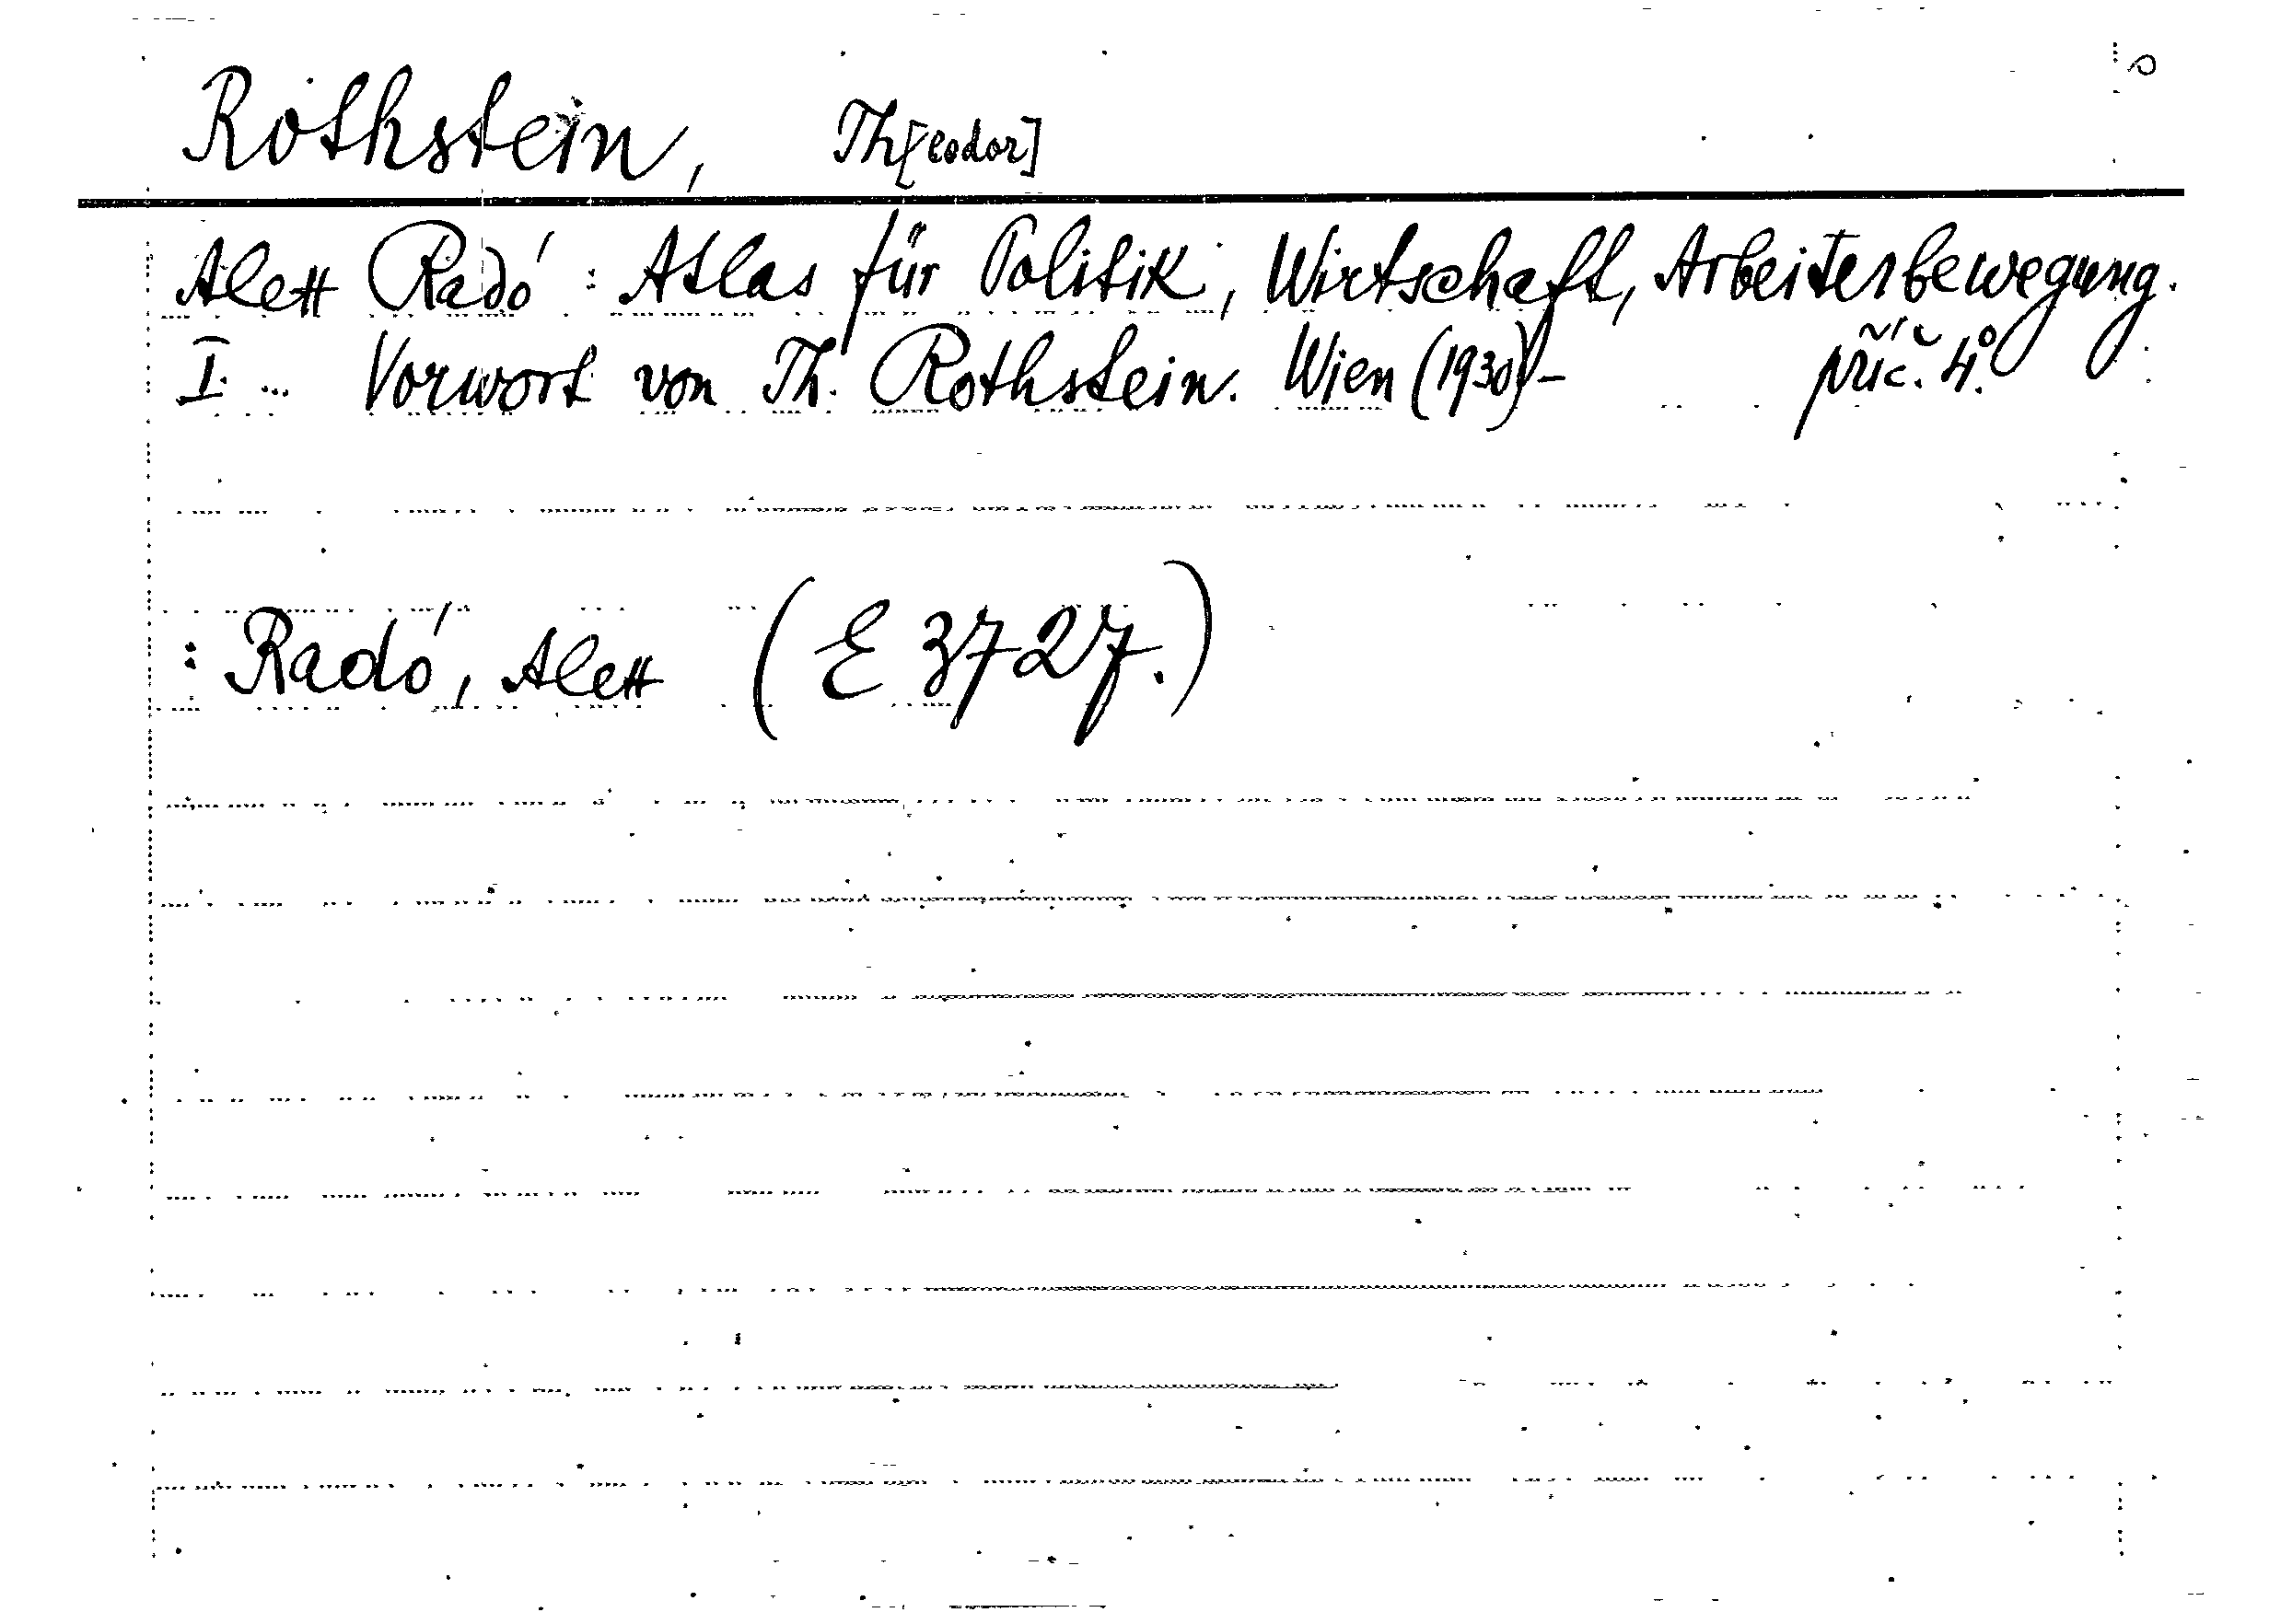 Rothstein, Th[eodor]
Alex Radó: Atlas für Politik, Wirtschaft, Arbeiterbewegung.
I... Vorwort von Th. Rothstein. Wien (1930)- příč. 4°.
: Radó, Alex (E 3727.)